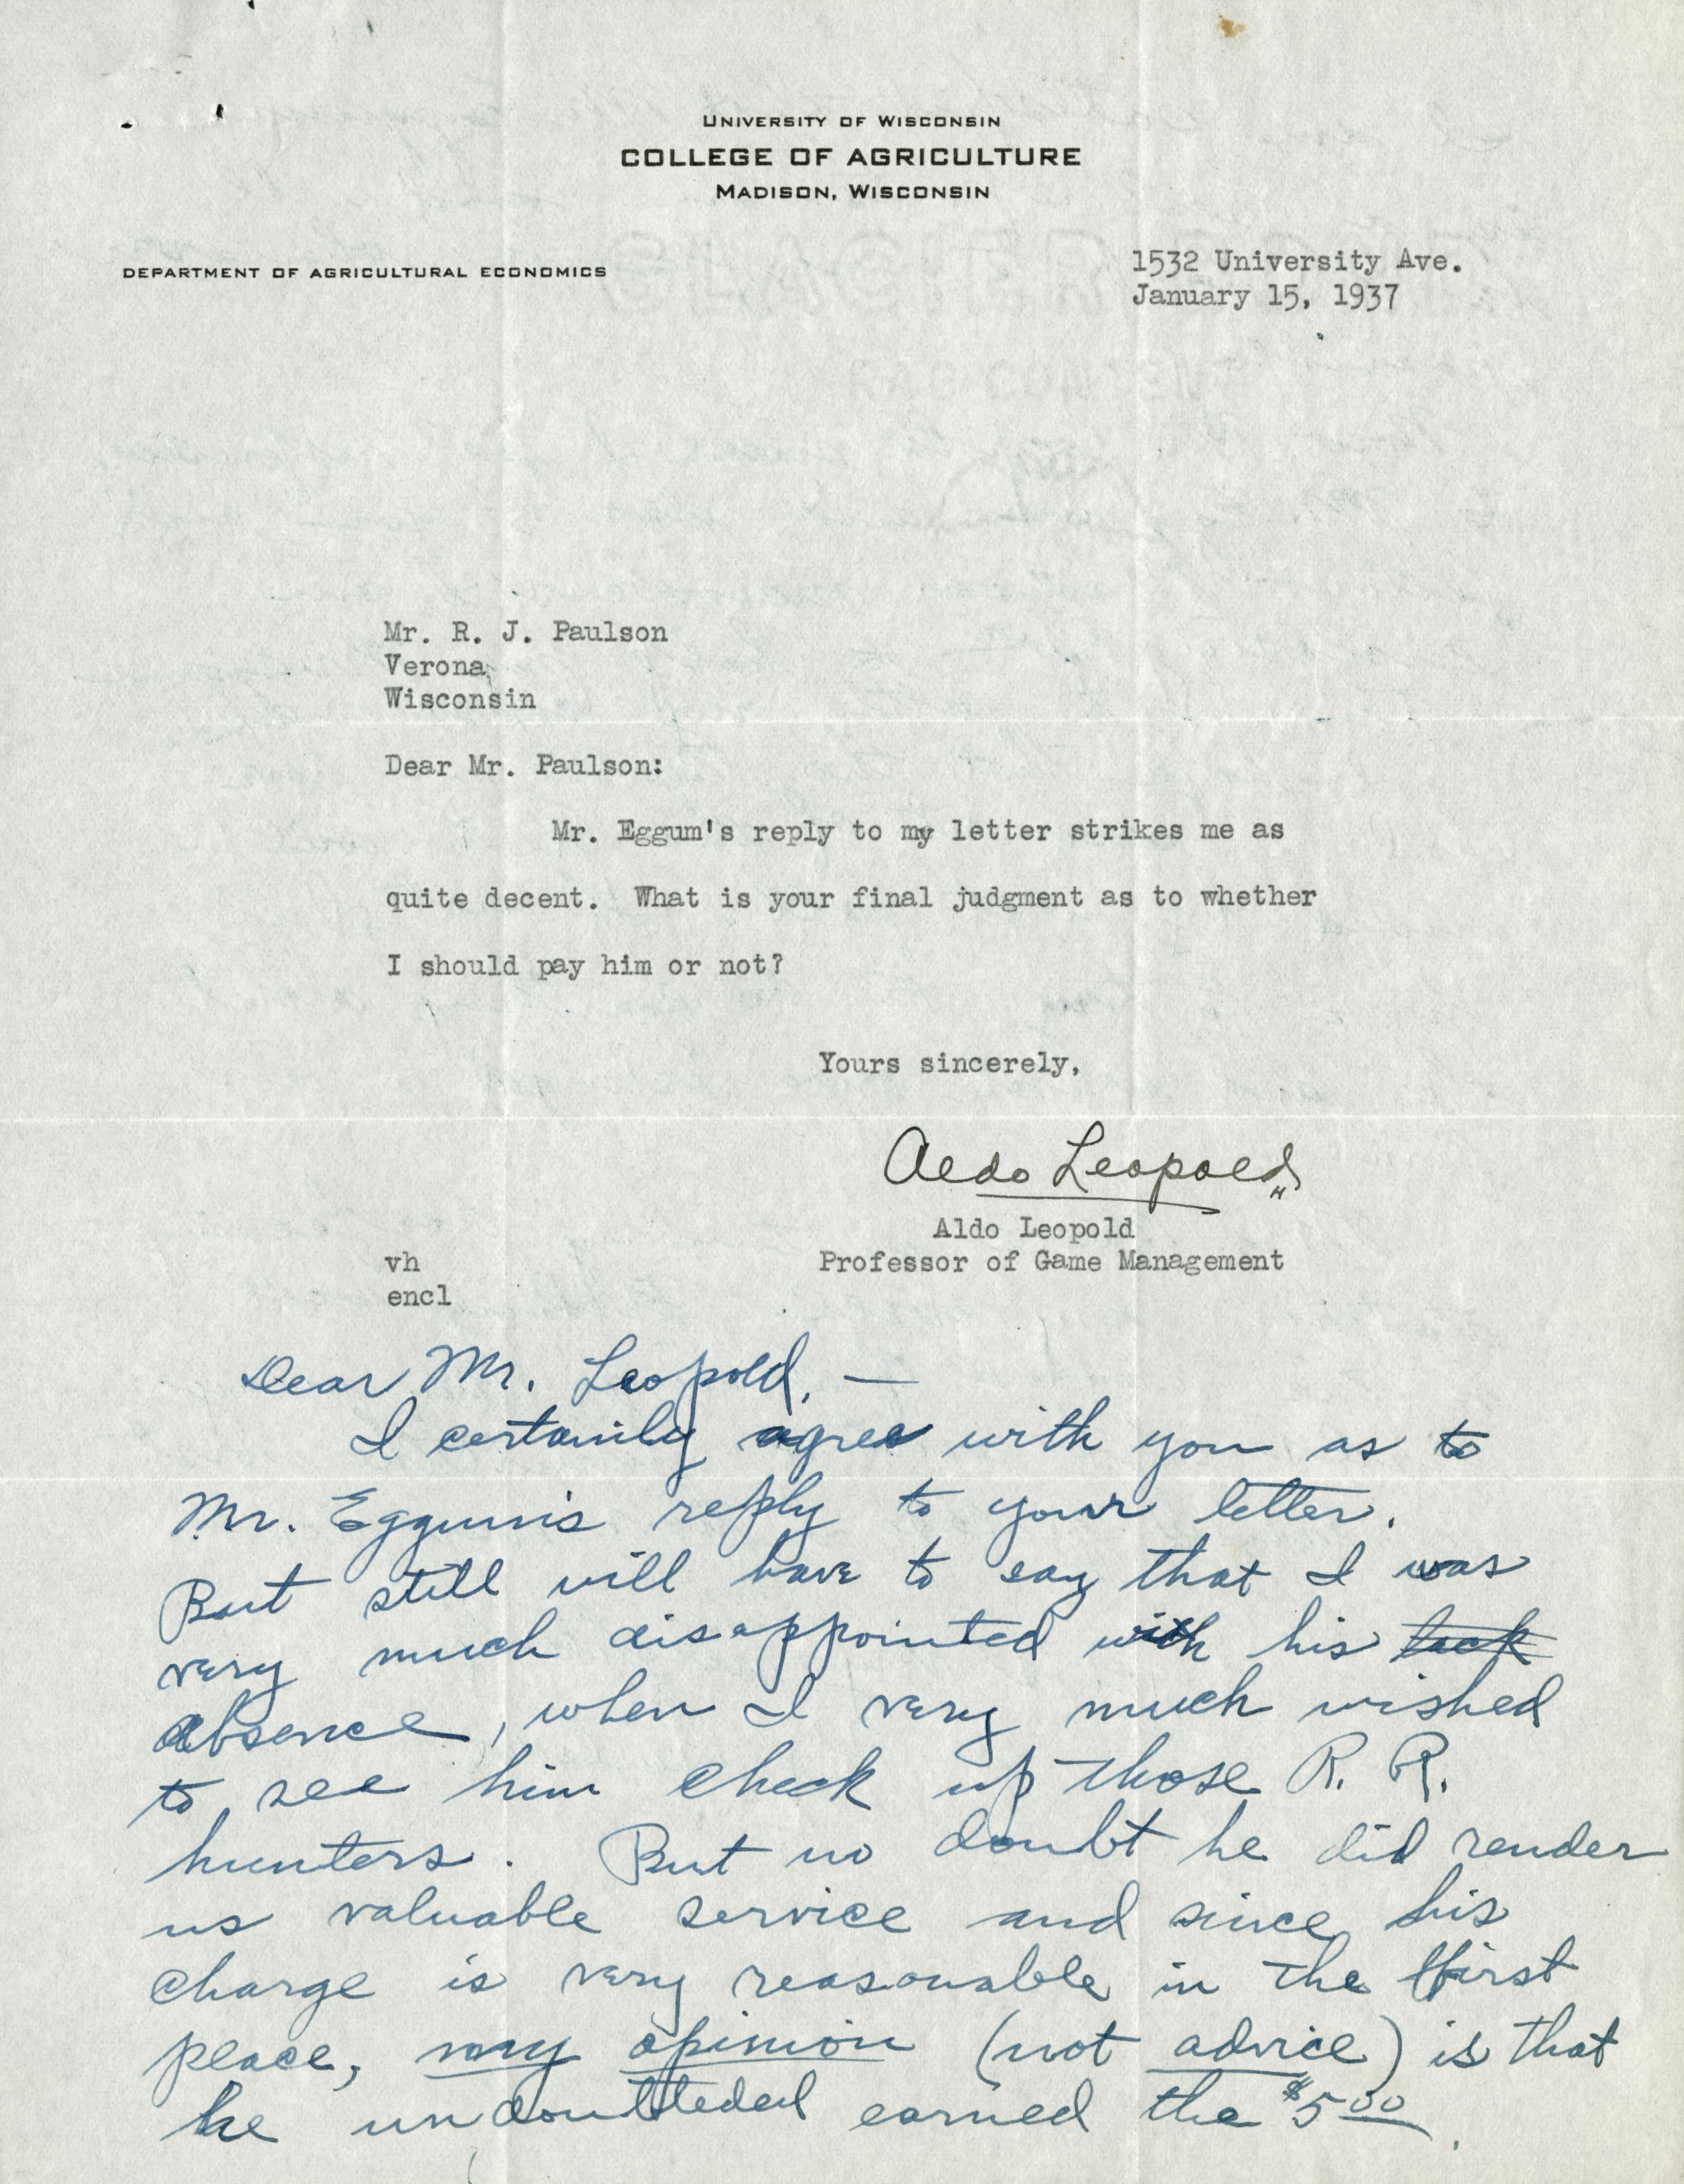 UNIVERSITY OF WISCONSIN
COLLEGE OF AGRICULTURE
MADISON, WISCONSIN
DEPARTMENT OF AGRICULTURAL ECONOMICS
1532 University Ave.
January 15, 1937
Mr. R. J. Paulson
Verona,
Wisconsin
Dear Mr. Paulson:
Mr. Eggum's reply to my letter strikes me as
quite decent. What is your final judgment as to whether
I should pay him or not?
Yours sincerely,
Aldo Leopold
Aldo Leopold
Professor of Game Management
vh
encl
Dear Mr. Leopold, —
I certainly agree with you as to
Mr. Eggum's reply to your letter.
But still will have to say that I was
very much disappointed with his lack
absence, when I very much wished
to see him check up those R. R.
hunters. But no doubt he did render
us valuable service and since his
charge is very reasonable in the first
place, my opinion (not advice) is that
he undoubteded earned the $5 00.